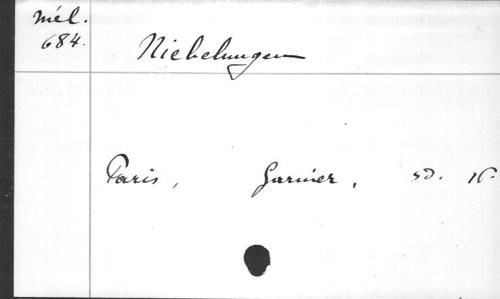 Mél.
684.
Niebelungen
Paris, Garnier, sd. 16.